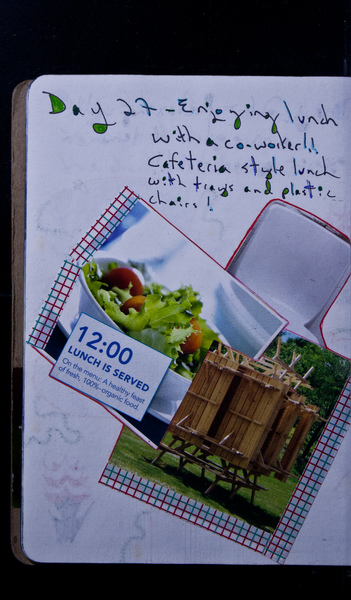 Day 27 - Enjoying lunch
with a co-worker!!
Cafeteria style lunch
with trays and plastic
chairs!
12:00
LUNCH IS SERVED
On the menu: A healthy feast
of fresh, 100%-organic food.